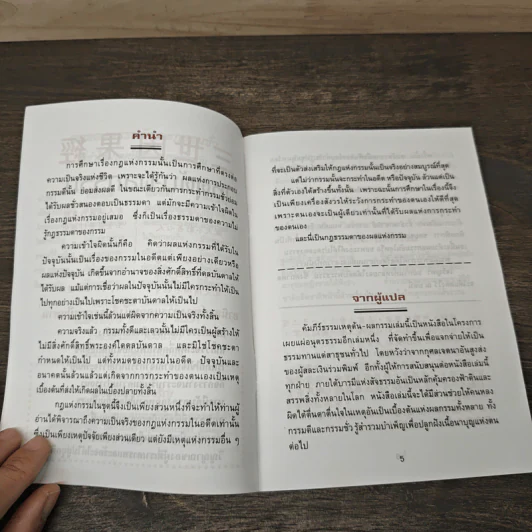 คำนำ
การศึกษาเรื่องกฎแห่งกรรมนั้นเป็นการศึกษาที่ตรงต่อ
ความเป็นจริงแห่งชีวิต เพราะจะได้รู้กันว่า ผลแห่งการประกอบ
กรรมดีนั้น ย่อมส่งผลดี ในขณะเดียวกันการกระทำกรรมชั่วย่อม
ได้รับผลชั่วสนองตอบเป็นธรรมดา แต่มักจะมีความเข้าใจผิดใน
เรื่องกฎแห่งกรรมอยู่เสมอ ซึ่งก็เป็นเรื่องธรรมดาของความไม่
รู้กฎธรรมดาของกรรม
ความเข้าใจผิดนั้นก็คือ คิดว่าผลแห่งกรรมที่ได้รับใน
ปัจจุบันนั้นเป็นเรื่องของกรรมในอดีตแต่เพียงอย่างเดียวหรือ
ผลแห่งปัจจุบัน เกิดขึ้นจากอำนาจของสิ่งศักดิ์สิทธิ์ที่ดลบันดาลให้
ได้รับผล แม้แต่การเชื่อว่าผลในปัจจุบันนั้นไม่มีใครกระทำให้เป็น
ไปทุกอย่างเป็นไปเพราะโชคชะตาบันดาลให้เป็นไป
ความเข้าใจเช่นนี้ล้วนแต่ผิดจากความเป็นจริงทั้งสิ้น
ความจริงแล้ว กรรมทั้งดีและเลวนั้นไม่มีใครเป็นผู้สร้างให้
ไม่มีสิ่งศักดิ์สิทธิ์พระองค์ใดดลบันดาล และมิใช่โชคชะตา
กำหนดให้เป็นไป แต่ทั้งหมดของกรรมในอดีต ปัจจุบันและ
อนาคตนั้นล้วนแล้วแต่เกิดจากการกระทำของตนเองเป็นเหตุ
เบื้องต้นที่ส่งให้เกิดผลในเบื้องปลายทั้งสิ้น
กฎแห่งกรรมในชุดนี้จึงเป็นเพียงส่วนหนึ่งที่จะทำให้ท่านผู้
อ่านได้พิจารณาถึงความเป็นจริงของกฎแห่งกรรมในอดีตเท่านั้น
ซึ่งเป็นเพียงเหตุปัจจัยเพียงส่วนเดียว แต่ยังมีเหตุแห่งกรรมอื่น ๆ
ที่จะเป็นตัวส่งเสริมให้กฎแห่งกรรมนั้นเป็นจริงอย่างสมบูรณ์ที่สุด
แต่ไม่ว่ากรรมนั้นจะกระทำในอดีต หรือปัจจุบัน ล้วนแต่เป็น
สิ่งที่ตัวเองได้สร้างขึ้นทั้งนั้น เพราะฉะนั้นการศึกษาในเรื่องนี้จึง
เป็นเพียงเครื่องสังวรให้ระวังการกระทำของตนเองให้ดีที่สุด
เพราะตนเองจะเป็นผู้เดียวเท่านั้นที่ได้รับผลแห่งการกระทำ
ของตนเอง
และนี่เป็นกฎธรรมดาของผลแห่งกรรม
จากผู้แปล
คัมภีร์ธรรมเหตุต้น-ผลกรรมเล่มนี้เป็นหนังสือในโครงการ
เผยแผ่อนุตรธรรมอีกเล่มหนึ่ง ที่จัดทำขึ้นเพื่อแจกจ่ายให้เป็น
ธรรมทานแด่สาธุชนทั่วไป โดยหวังว่าจากกุศลเจตนาอันสูงส่ง
ของผู้สละเงินร่วมพิมพ์ อีกทั้งผู้ให้การสนับสนุนต่อหนังสือเล่มนี้
ทุกฝ่าย ภายใต้บารมีแห่งสัจธรรมอันเป็นหลักค้ำมุมครองฟ้าดินและ
สรรพสิ่งทั้งหลายในโลก หนังสือเล่มนี้จะได้มีส่วนช่วยให้คนหลง
ผิดได้ตื่นตาตื่นใจในเหตุอันเป็นเบื้องต้นแห่งผลกรรมทั้งหลาย ทั้ง
กรรมดีและกรรมชั่ว รู้สร้างบำเพ็ญเพื่อปลูกฝังเนื้อนาบุญแห่งตน
ต่อไป
5